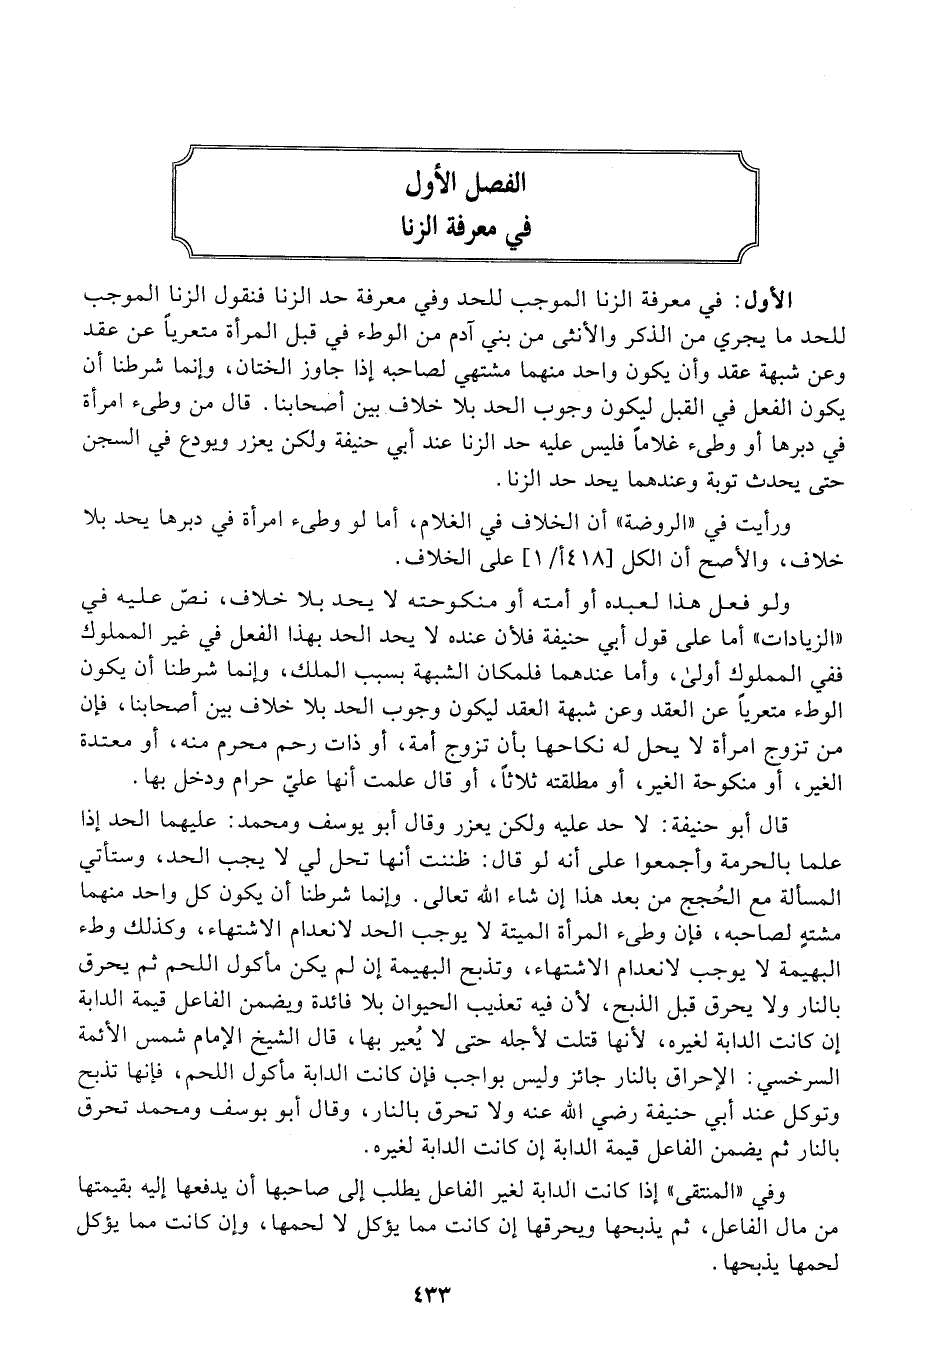 الفصل الأول
في معرفة الزنا
الأول: في معرفة الزنا الموجب للحد وفي معرفة حد الزنا فنقول الزنا الموجب
للحد ما يجري من الذكر والأنثى من بني آدم من الوطء في قبل المرأة متعرياً عن عقد
وعن شبهة عقد وأن يكون واحد منهما مشتهي لصاحبه إذا جاوز الختان، وإنما شرطنا أن
يكون الفعل في القبل ليكون وجوب الحد بلا خلاف بين أصحابنا. قال من وطىء امرأة
في دبرها أو وطىء غلاماً فليس عليه حد الزنا عند أبي حنيفة ولكن يعزر ويودع في السجن
حتى يحدث توبة وعندهما يحد حد الزنا.
ورأيت في «الروضة» أن الخلاف في الغلام، أما لو وطىء امرأة في دبرها يحد بلا
خلاف، والأصح أن الكل [٤١٨أ/ ١] على الخلاف.
ولو فعل هذا لعبده أو أمته أو منكوحته لا يحد بلا خلاف، نصّ عليه في
«الزيادات» أما على قول أبي حنيفة فلأن عنده لا يحد الحد بهذا الفعل في غير المملوك
ففي المملوك أولىٰ، وأما عندهما فلمكان الشبهة بسبب الملك، وإنما شرطنا أن يكون
الوطء متعرياً عن العقد وعن شبهة العقد ليكون وجوب الحد بلا خلاف بين أصحابنا، فإن
من تزوج امرأة لا يحل له نكاحها بأن تزوج أمة، أو ذات رحم محرم منه، أو معتدة
الغير، أو منكوحة الغير، أو مطلقته ثلاثاً، أو قال علمت أنها عليّ حرام ودخل بها.
قال أبو حنيفة: لا حد عليه ولكن يعزر وقال أبو يوسف ومحمد: عليهما الحد إذا
علما بالحرمة وأجمعوا على أنه لو قال: ظننت أنها تحل لي لا يجب الحد، وستأتي
المسألة مع الحُجج من بعد هذا إن شاء الله تعالى. وإنما شرطنا أن يكون كل واحد منهما
مشتهٍ لصاحبه، فإن وطىء المرأة الميتة لا يوجب الحد لانعدام الاشتهاء، وكذلك وطء
البهيمة لا يوجب لانعدام الاشتهاء، وتذبح البهيمة إن لم يكن مأكول اللحم ثم يحرق
بالنار ولا يحرق قبل الذبح، لأن فيه تعذيب الحيوان بلا فائدة ويضمن الفاعل قيمة الدابة
إن كانت الدابة لغيره، لأنها قتلت لأجله حتى لا يُعير بها، قال الشيخ الإمام شمس الأئمة
السرخسي: الإحراق بالنار جائز وليس بواجب فإن كانت الدابة مأكول اللحم، فإنها تذبح
وتوكل عند أبي حنيفة رضي الله عنه ولا تحرق بالنار، وقال أبو بوسف ومحمد تحرق
بالنار ثم يضمن الفاعل قيمة الدابة إن كانت الدابة لغيره.
وفي «المنتقى» إذا كانت الدابة لغير الفاعل يطلب إلى صاحبها أن يدفعها إليه بقيمتها
من مال الفاعل، ثم يذبحها ويحرقها إن كانت مما يؤكل لا لحمها، وإن كانت مما يؤكل
لحمها يذبحها.
٤٣٣